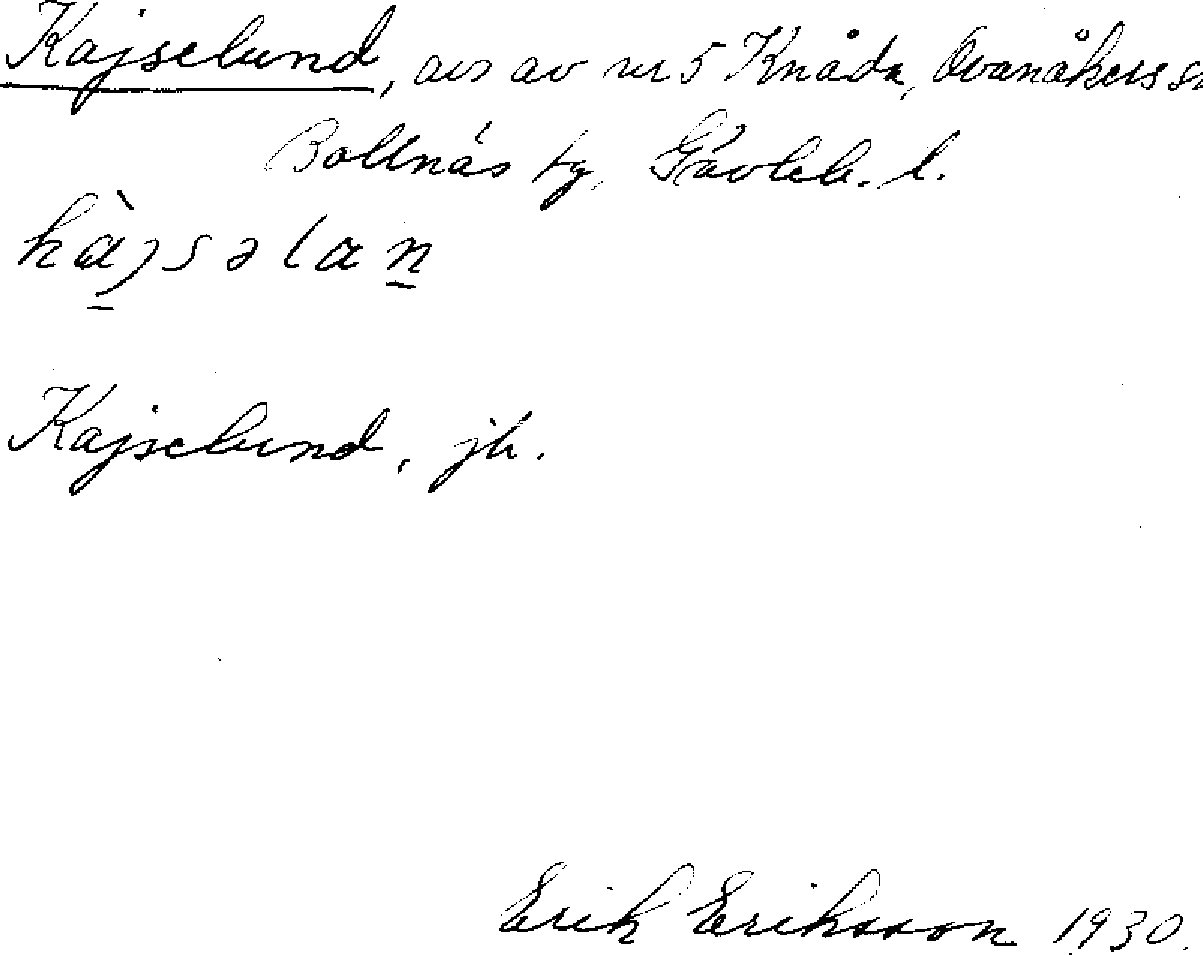 Kajselund, avs av nr 5 Knåda, Ovanåkers sn
Bollnäs tg, Gävleb. l.
kàjsəlan
Kajselund, jb.
Erik Eriksson 1930.